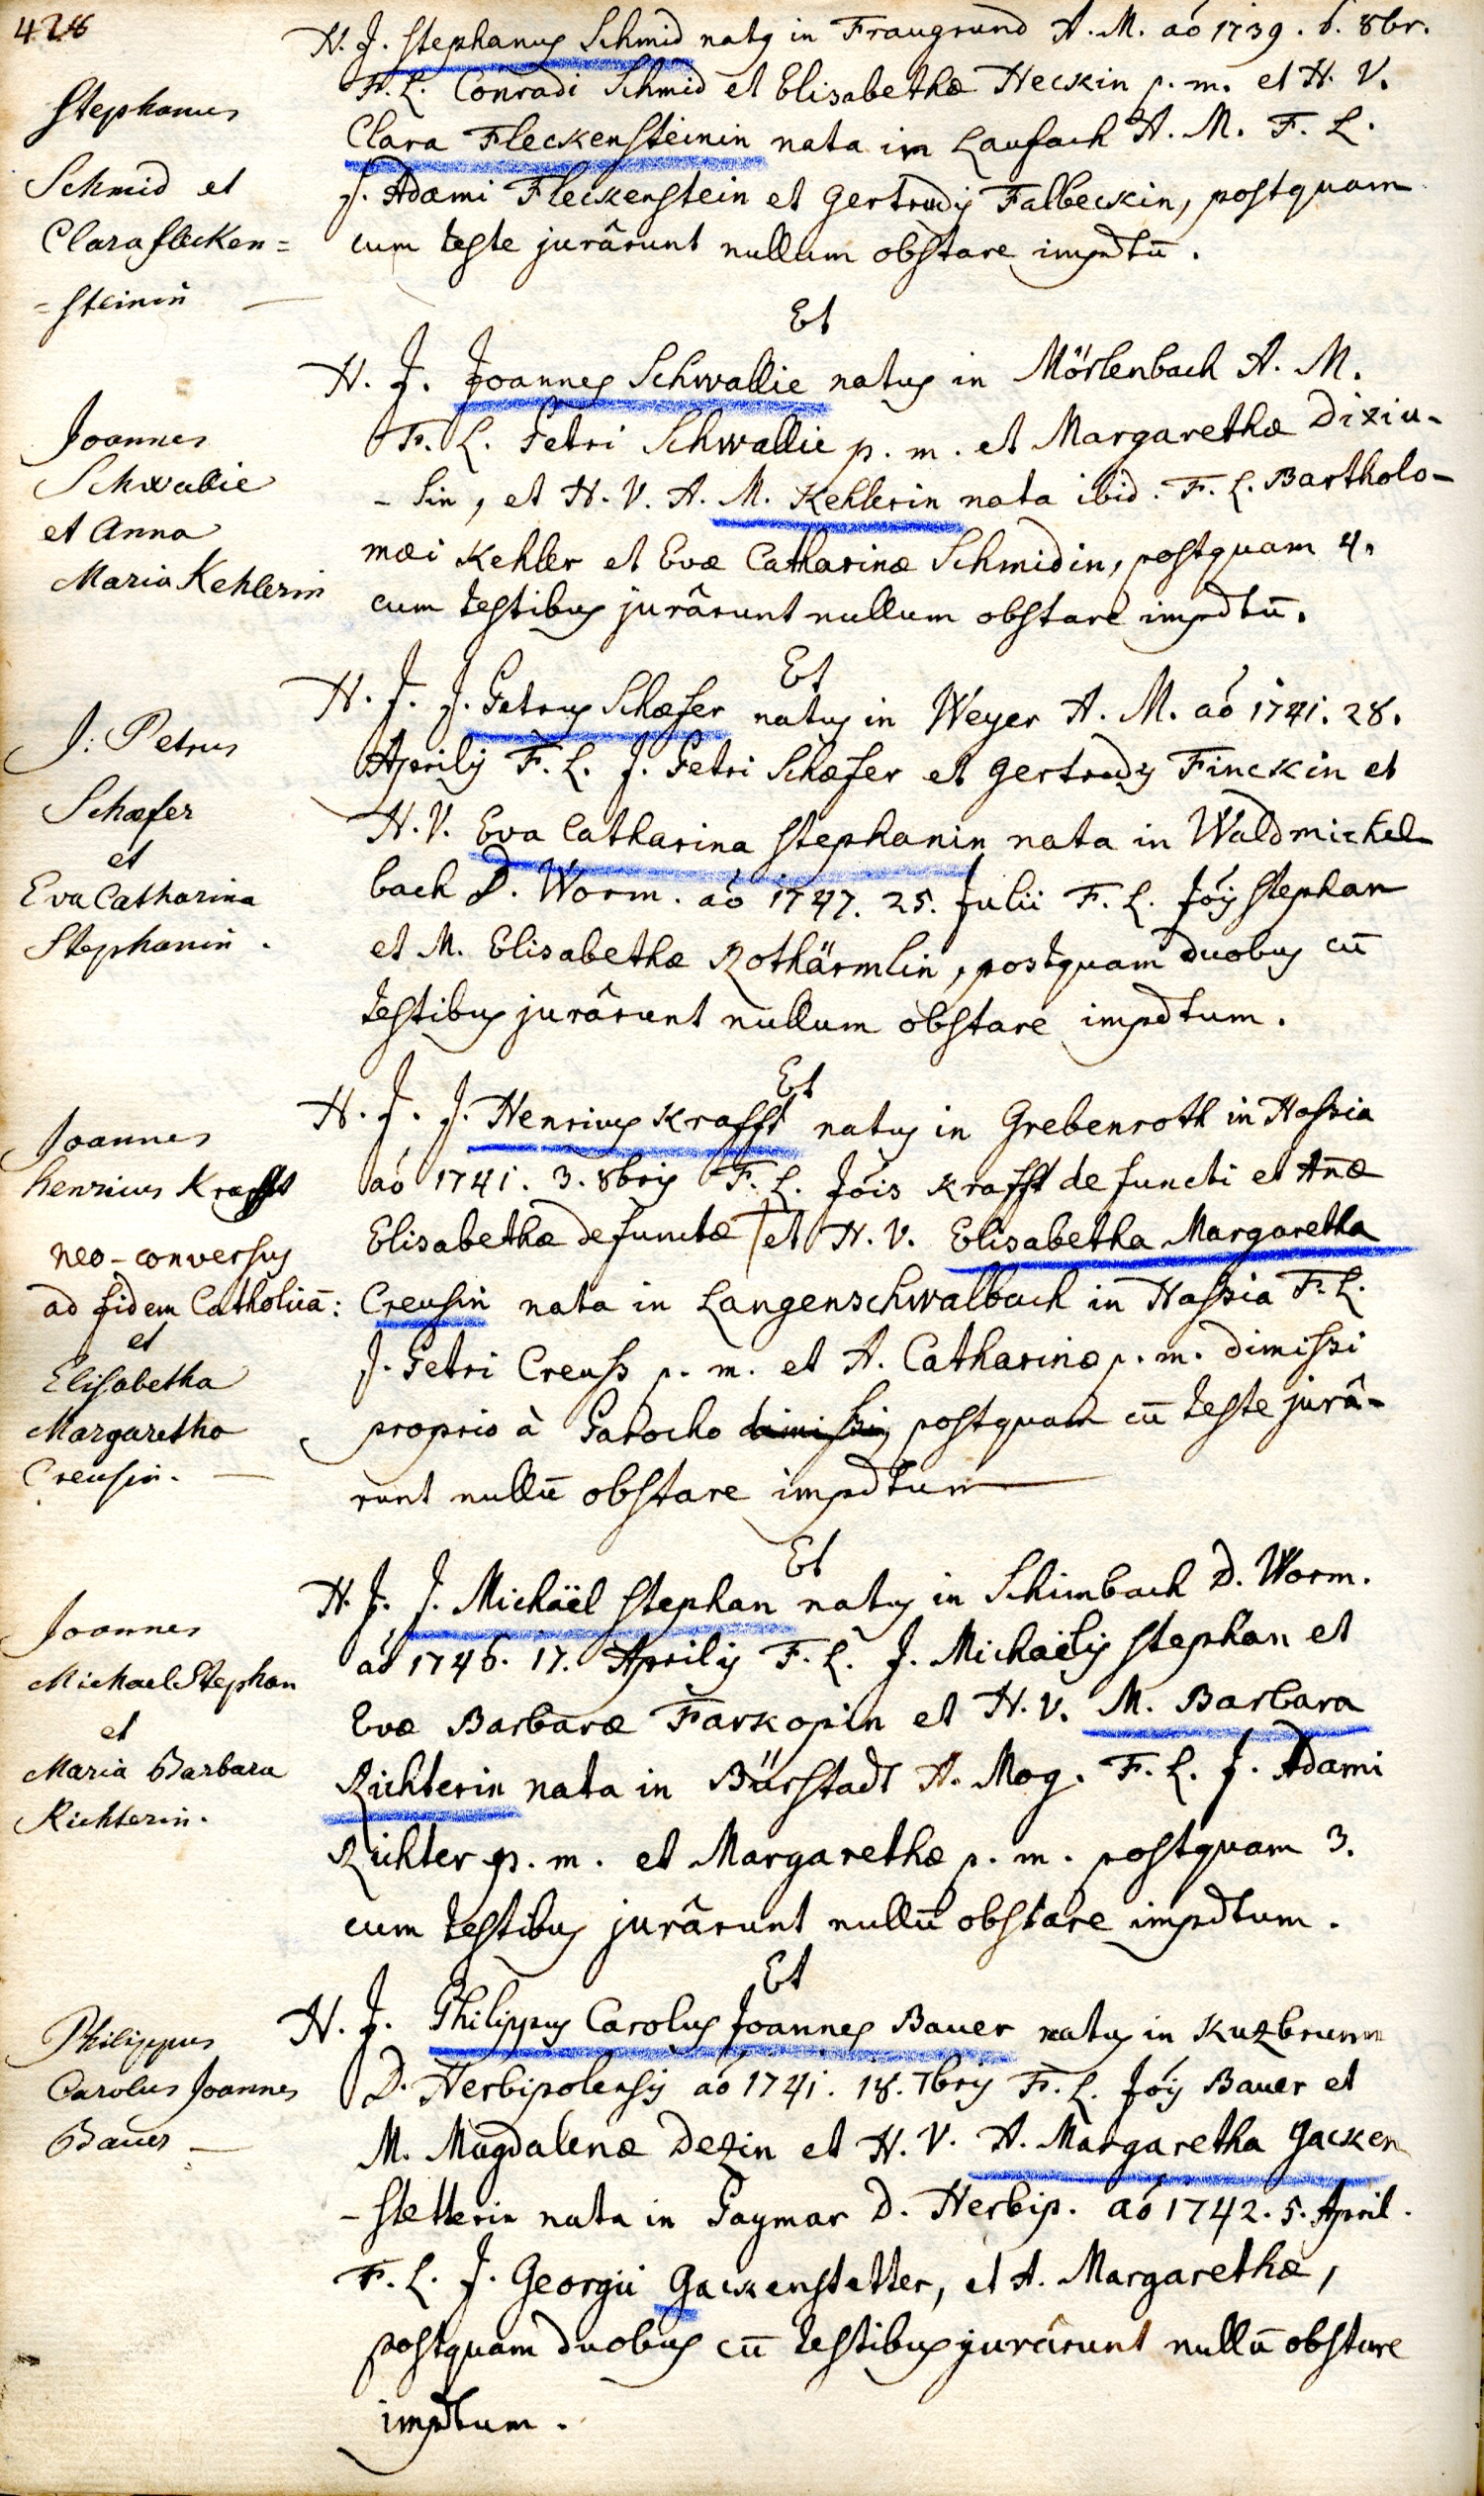 428
Stephanus
Schmid et
Clara flecken=
=steinin
H. J. Stephanus Schmid natus in Fraugrund A. M. aó 1739. 6. 8br.
F. L. Conradi Schmid et Elisabethæ Heckin p. m. et H. V.
Clara Fleckensteinin nata in Laufach A. M. F. L.
J. Adami Fleckenstein et Gertrudis Falbeckin, postquam
cum teste jurârunt nullum obstare impdtū.
Et
Joannes
Schwallie
et Anna
Maria Kehlerin
H. J. Joannes Schwallie natus in Mörlenbach A. M.
F. L. Petri Schwallie p. m. et Margarethæ Diziu-
-sin, et H. V. A. M. Kehlerin nata ibid. F. L. Bartholo-
mæi Kehler et Evæ Catharinæ Schmidin, postquam 4.
cum testibus jurârunt nullum obstare impdtū.
Et
J: Petrus
Schæfer
et
Eva Catharina
Stephanin.
H. J. J. Petrus Schæfer natus in Weyer A. M. aó 1741. 28.
Aprilis F. L. J. Petri Schæfer et Gertrudis Finckin et
H. V. Eva Catharina Stephanin nata in Waldmichel
bach D. Worm. aó 1747. 25. Julii F. L. Jóis Stephan
et M. Elisabethæ Rothärmlin, postquam duobus cū
testibus jurârunt nullum obstare impdtum.
Et
Joannes
henricus Krafft
neo-conversus
ad fidem Catholicā:
et
Elisabetha
Margaretha
Creusin.
H. J. J. Henricus Krafft natus in Grebenroth in Hassia
aó 1741. 3. 8bris F. L. Jóis Krafft defuncti et Añæ
Elisabethæ defunctæ et H. V. Elisabetha Margaretha
Creusin nata in Langenschwalbach in Hassia F. L.
J. Petri Creuss p. m. et A. Catharinæ p. m. dimissi
proprio à Parocho dimissi postquam cū teste jurâ-
runt nullū obstare impdtum
Et
Joannes
Michael Stephan
et
Maria Barbara
Richterin.
H. J. J. Michäel Stephan natus in Schimbach D. Worm.
aó 1746. 17. Aprilis F. L. J. Michaëlis Stephan et
Evæ Barbaræ Farkopin et H. V. M. Barbara
Richterin nata in Bürstadt A. Mog. F. L. J. Adami
Richter p. m. et Margarethæ p. m. postquam 3.
cum testibus jurârunt nullū obstare impdtum.
Et
Philippus
Carolus Joannes
Bauer
H. J. Philippus Carolus Joannes Bauer natus in Kuzbrunn
D. Herbipolensis aó 1741. 18. 7bris F. L. Jóis Bauer et
M. Magdalenæ Dezin et H. V. A. Margaretha Gacken
-stetterin nata in Gaymar D. Herbip. aó 1742. 5. April.
F. L. J. Georgii Gackenstetter, et A. Margarethæ,
postquam duobus cū testibus jurârunt nullū obstare
impdtum.